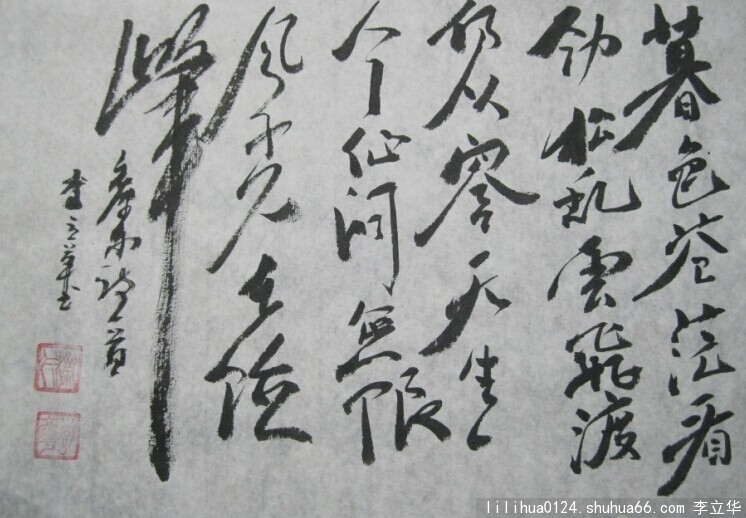 暮色苍茫看
劲松乱雲飛渡
仍从容天生一
个仙洞無限
风光在险
峰
诗一首
李立華书
lilihua0124.shuhua66.com 李立华